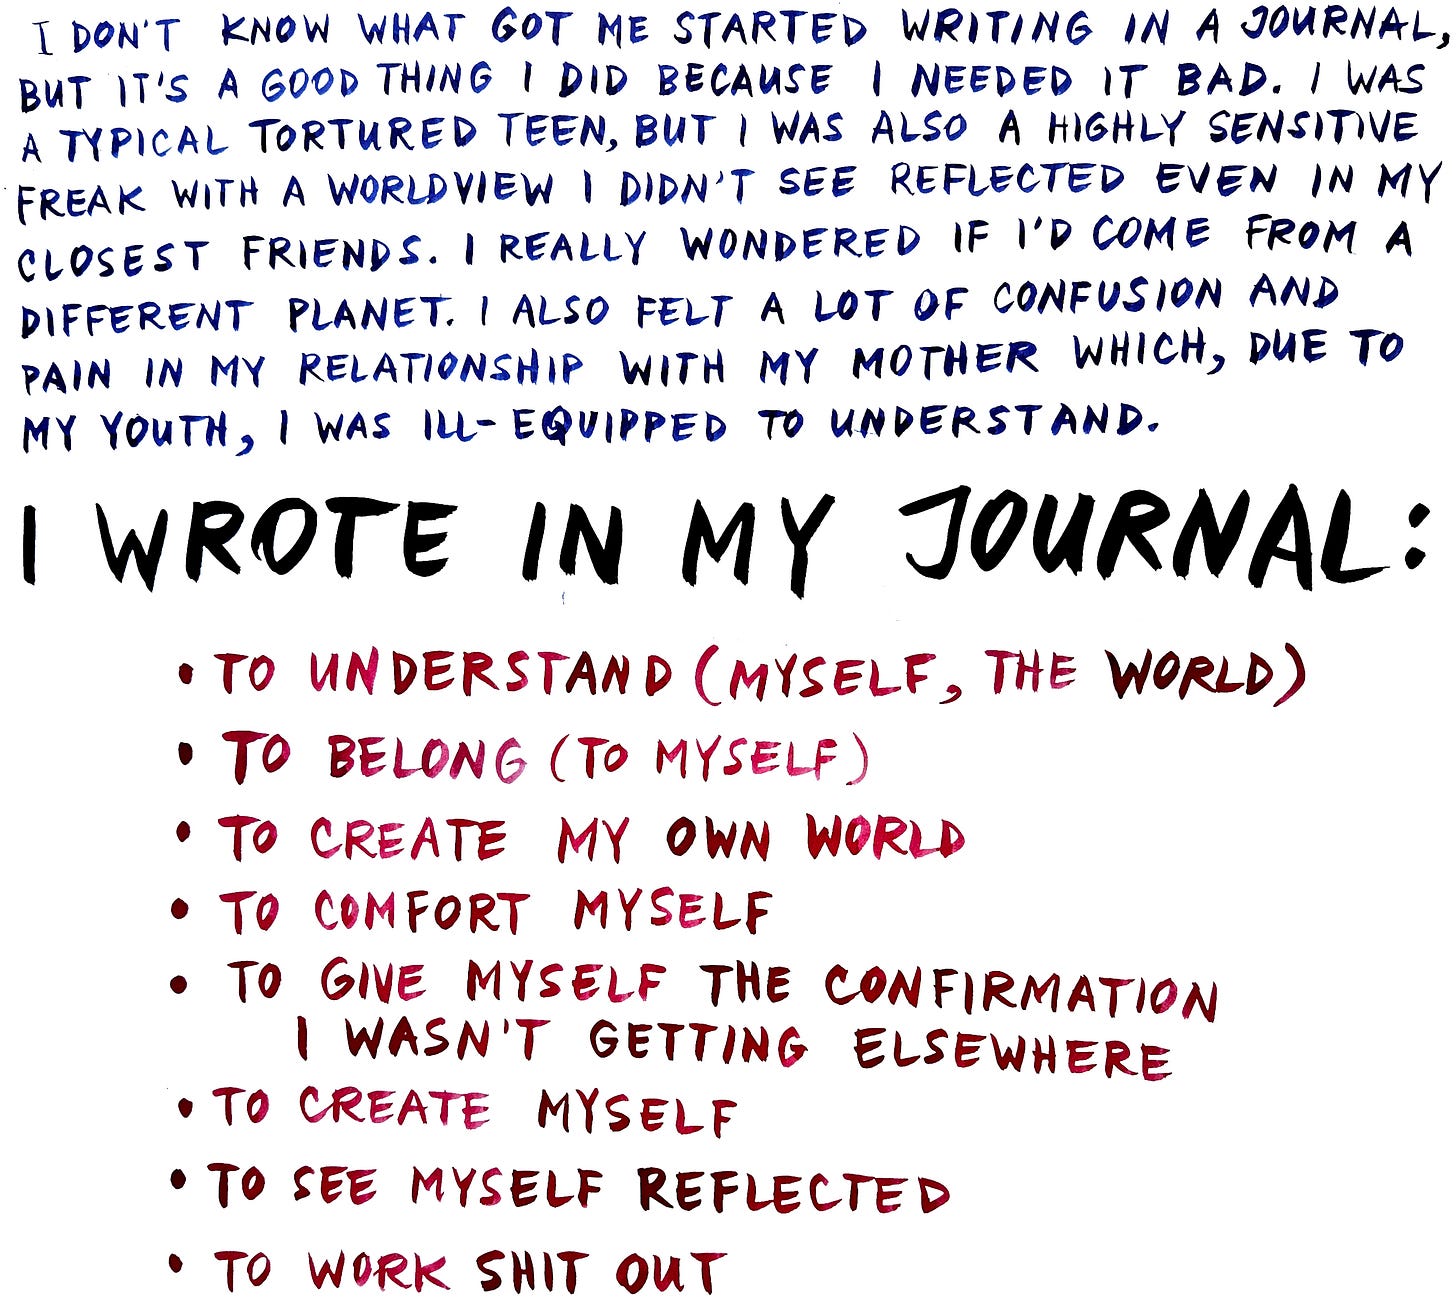 I DON'T KNOW WHAT GOT ME STARTED WRITING IN A JOURNAL,
BUT IT'S A GOOD THING I DID BECAUSE I NEEDED IT BAD. I WAS
A TYPICAL TORTURED TEEN, BUT I WAS ALSO A HIGHLY SENSITIVE
FREAK WITH A WORLDVIEW I DIDN'T SEE REFLECTED EVEN IN MY
CLOSEST FRIENDS. I REALLY WONDERED IF I'D COME FROM A
DIFFERENT PLANET. I ALSO FELT A LOT OF CONFUSION AND
PAIN IN MY RELATIONSHIP WITH MY MOTHER WHICH, DUE TO
MY YOUTH, I WAS ILL-EQUIPPED TO UNDERSTAND.
I WROTE IN MY JOURNAL:
• TO UNDERSTAND (MYSELF, THE WORLD)
• TO BELONG (TO MYSELF)
• TO CREATE MY OWN WORLD
• TO COMFORT MYSELF
• TO GIVE MYSELF THE CONFIRMATION
I WASN'T GETTING ELSEWHERE
• TO CREATE MYSELF
• TO SEE MYSELF REFLECTED
• TO WORK SHIT OUT